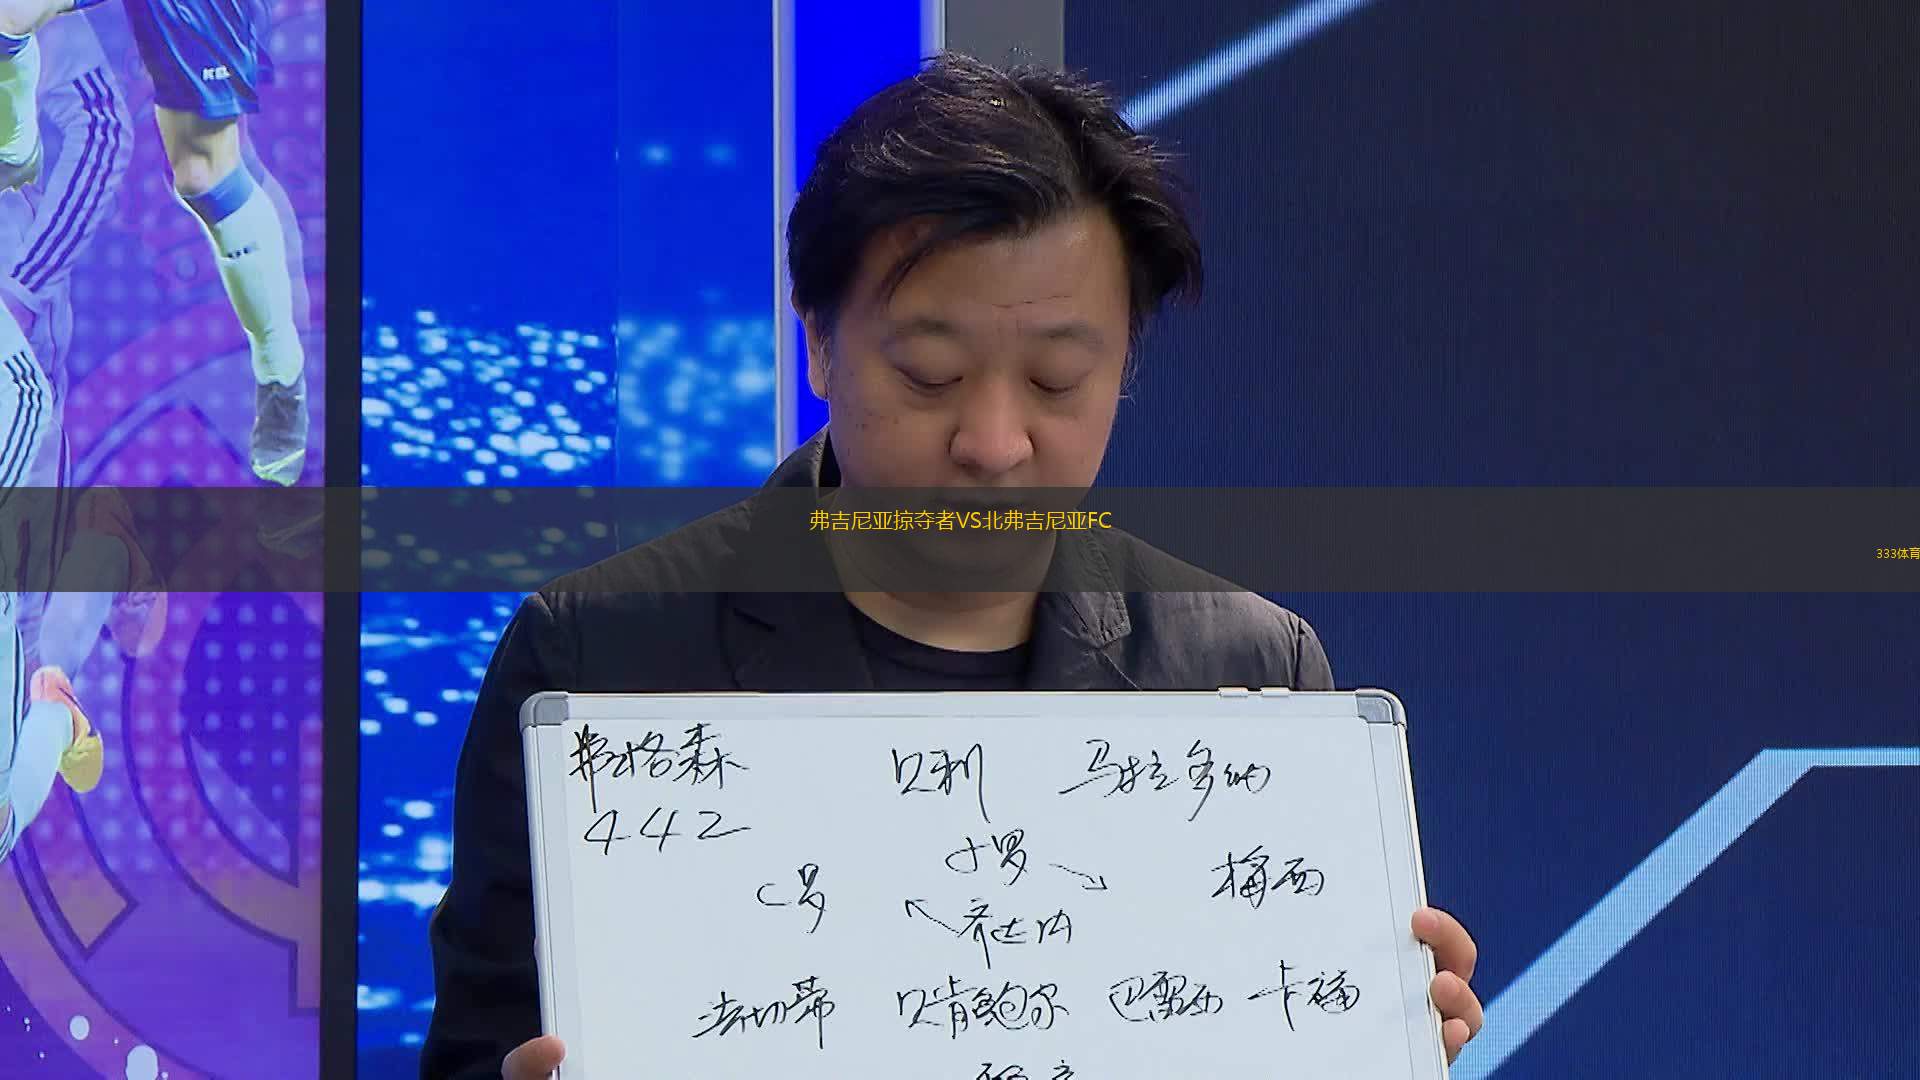 弗吉尼亚掠夺者VS北弗吉尼亚FC
333体育
弗格森
贝利 马拉多纳
442
小罗
C罗 梅西
齐达内
法切蒂 贝肯鲍尔 巴雷西 卡福